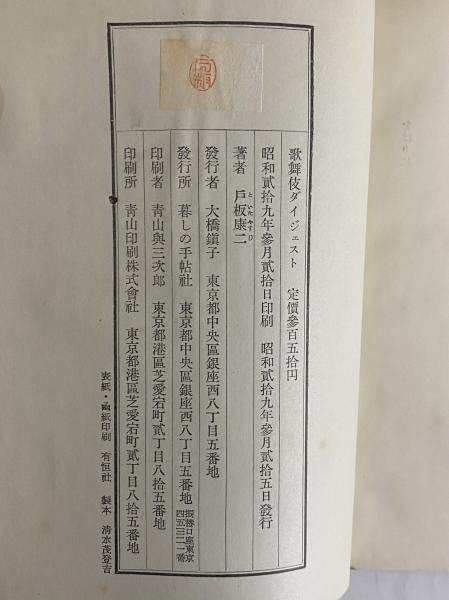 歌舞伎ダイジェスト 定價參百五拾円
昭和貳拾九年參月貳拾日印刷 昭和貳拾九年參月貳拾五日發行
著者 戶板康二
といたやすじ
發行者 大橋鎭子 東京都中央區銀座西八丁目五番地
發行所 暮しの手帖社 東京都中央區銀座西八丁目五番地 振替口座東京四五三二一番
印刷者 靑山與三次郎 東京都港區芝愛宕町貳丁目八拾五番地
印刷所 靑山印刷株式會社 東京都港區芝愛宕町貳丁目八拾五番地
表紙・函紙印刷 有恒社 製本 淸水茂登吉